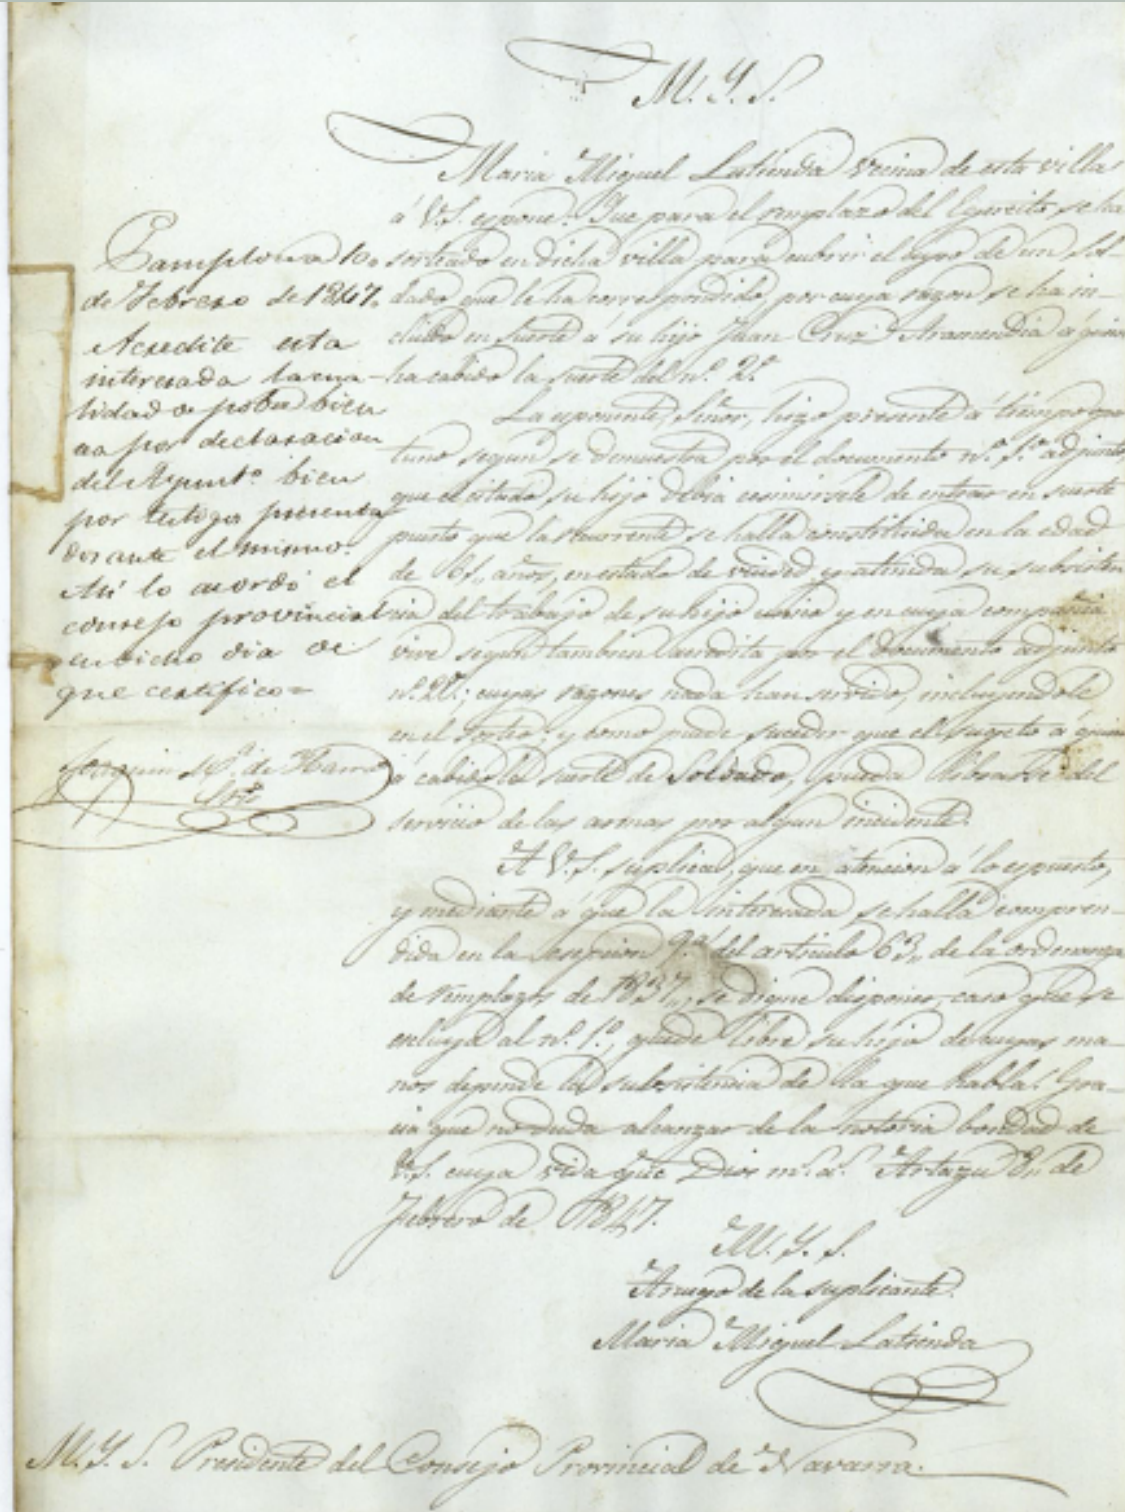 M. Y. S.
Maria Miguel Latienda vecina de esta villa
á V.S. espone: Que para el remplazo del Egercito se ha
sorteado en dicha villa para cubrir el cupo de un Sol-
dado que le ha correspondido, por cuya razon se ha in-
cluido en suerte á su hijo Juan Cruz Aramendia á quien
ha cabido la suerte del nº. 2º.
La esponente, Señor, hizo presente á tiempo opor
tuno segun se demuestra por el documento nº. 1º. adjunto,
que el citado su hijo debia eximirsele de entrar en suerte
puesto que la recurrente se halla constituida en la edad
de 61,, años, en estado de viudez y atenida su subsisten
cia del trabajo de su hijo unico y en cuya compañia
vive segun tambien acredita por el documento adjunto
nº. 2º.; cuyas razones nada han servido, incluyendole
en el sorteo; y como puede suceder que el sugeto á quien
á cabido la suerte de Soldado, pueda librarse del
servicio de las armas por algun incidente.
A V.S. suplica, que en atencion á lo espuesto,
y mediante á que la interesada se halla compren-
dida en la esepcion 9ª. del articulo 63,, de la ordenanza
de remplazos de 1837,, se digne disponer, caso que se
escluya al nº. 1º., quede libre su hijo de cuyas ma-
nos depende la subsistencia de la que habla: Gra-
cia que no duda alcanzar de la notoria bondad de
V.S. cuya vida gue. Dios m.s a.s Artazu 8,, de
Febrero de 1847.
M. Y. S.
Arruego de la suplicante.
Maria Miguel Latienda
Pamplona 10,,
de Febrero de 1847.
Acredite esta
interesada la cua-
lidad de pobre bien
sea por declaracion
del Ayunt.º bien
por testigos presenta
dos ante el mismo.
Asi lo acordó el
consejo provincial
en dicho dia de
que certifico=
Joaquin de
Srio
M. Y. S. Presidente del Consejo Provincial de Navarra.